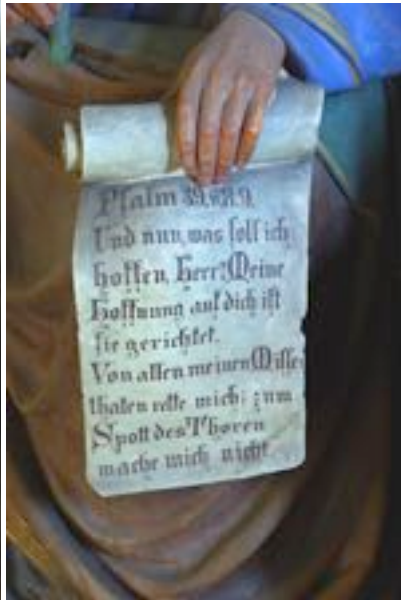 Psalm 39,8.9.
Und nun, was soll ich
hoffen, Herr? Meine
Hoffnung auf dich ist
sie gerichtet.
Von allen meinen Misse-
thaten rette mich; zum
Spott des Thoren
mache mich nicht.